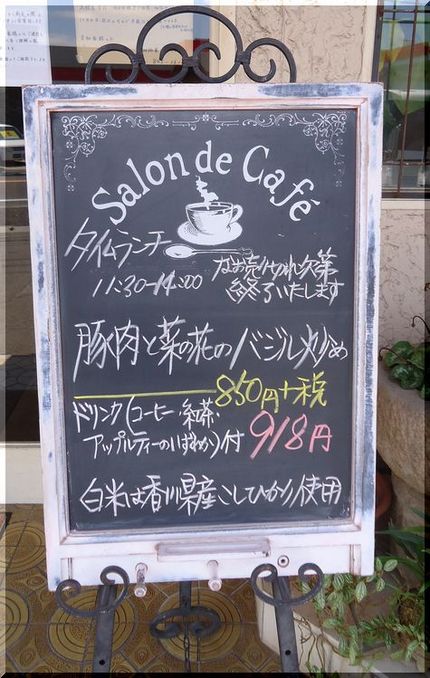 Salon de Café
タイムランチ
11:30-14:00
なお売り切れ次第
終了いたします
豚肉と菜の花のバジル炒め
850円+税
ドリンク(コーヒー・紅茶・
アップルティーのいずれか)付
918円
白米は香川県産こしひかり使用